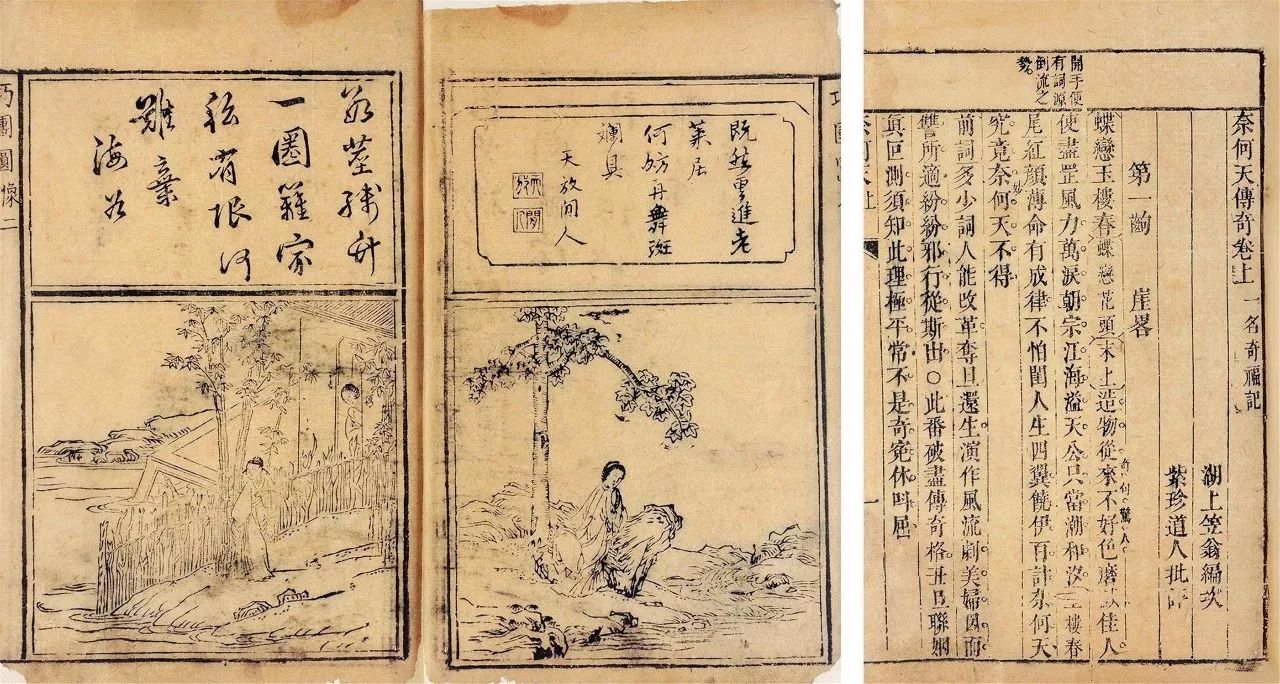 奈何天傳奇卷上 一名奇福記
湖上笠翁編次
紫珍道人批評
第一齣 崖畧
開手便
有詞源
倒流之
勢
蝶戀玉樓春 蝶戀花頭 末上 造物從來不好色磨滅佳人
奇句驚人
使盡罡風力萬淚朝宗江海溢天公只當潮和汐 玉樓春
尾紅顏薄命有成律不怕閨人生四翼饒伊百計奈何天
究竟奈何天不得
妙
前詞多少詞人能改革奪旦還生演作風流劇美婦因而
讐所適紛紛邪行從斯出○此番破盡傳奇格丑旦聯姻
真叵測須知此理極平常不是奇寃休呌屈
既然重進老
萊居
何妨再舞斑
斕具
天放閒人
天放閒人
數莖殘竹
一圈籬家
私有限何
難棄
海若
巧團圓像二